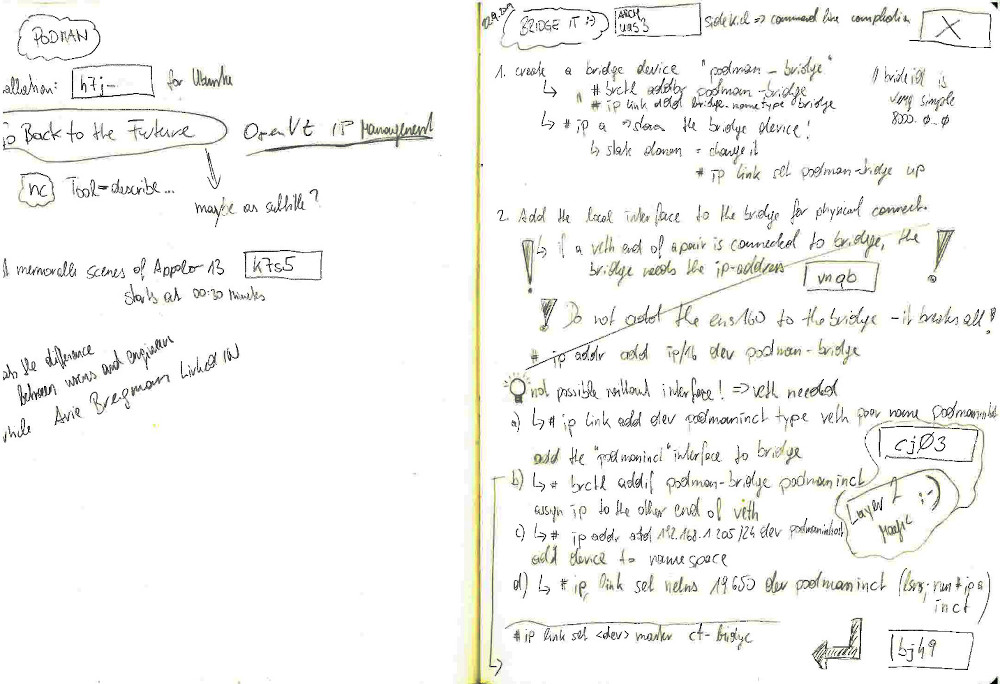 PODMAN
allation: h7j- for Ubuntu
Back to the Future
OpenVZ IP Management
nc Tool = describe...
maybe as subtitle?
memorable scenes of Appolo 13 k7s5
starts at 00:30 minutes
the difference
between works and engineers
Arie Bregman Linked IN
BRIDGE IT :-) ARCH uas3 sidekick => command line completion X
1. create a bridge device "podman-bridge"
↳ # brctl addbr podman-bridge
" # ip link add bridge-name type bridge
↳ # ip a => shows the bridge device!
↳ state down = change it
# ip link set podman-bridge up
// bridge id is
very simple
8000.0-0
2. Add the local interface to the bridge for physical connect.
! ↳ if a veth end of a pair is connected to bridge, the !
bridge needs the ip-address
vnqb
! Do not add the ens160 to the bridge - it breaks all!
# ip addr add ip/16 dev podman-bridge
not possible without interface! => veth needed
a) ↳ # ip link add dev podmaninct type veth peer name
add the "podmaninct" interface to bridge
cj03
b) ↳ # brctl addif podman-bridge podmaninct
assign ip to the other end of veth
Layer 2
Magic :-)
c) ↳ # ip addr add 192.168.1.205/24 dev
add device to namespace
d) ↳ # ip link set netns 19650 dev podmaninct
inct)
# ip link set <dev> master ct-bridge
bjh9